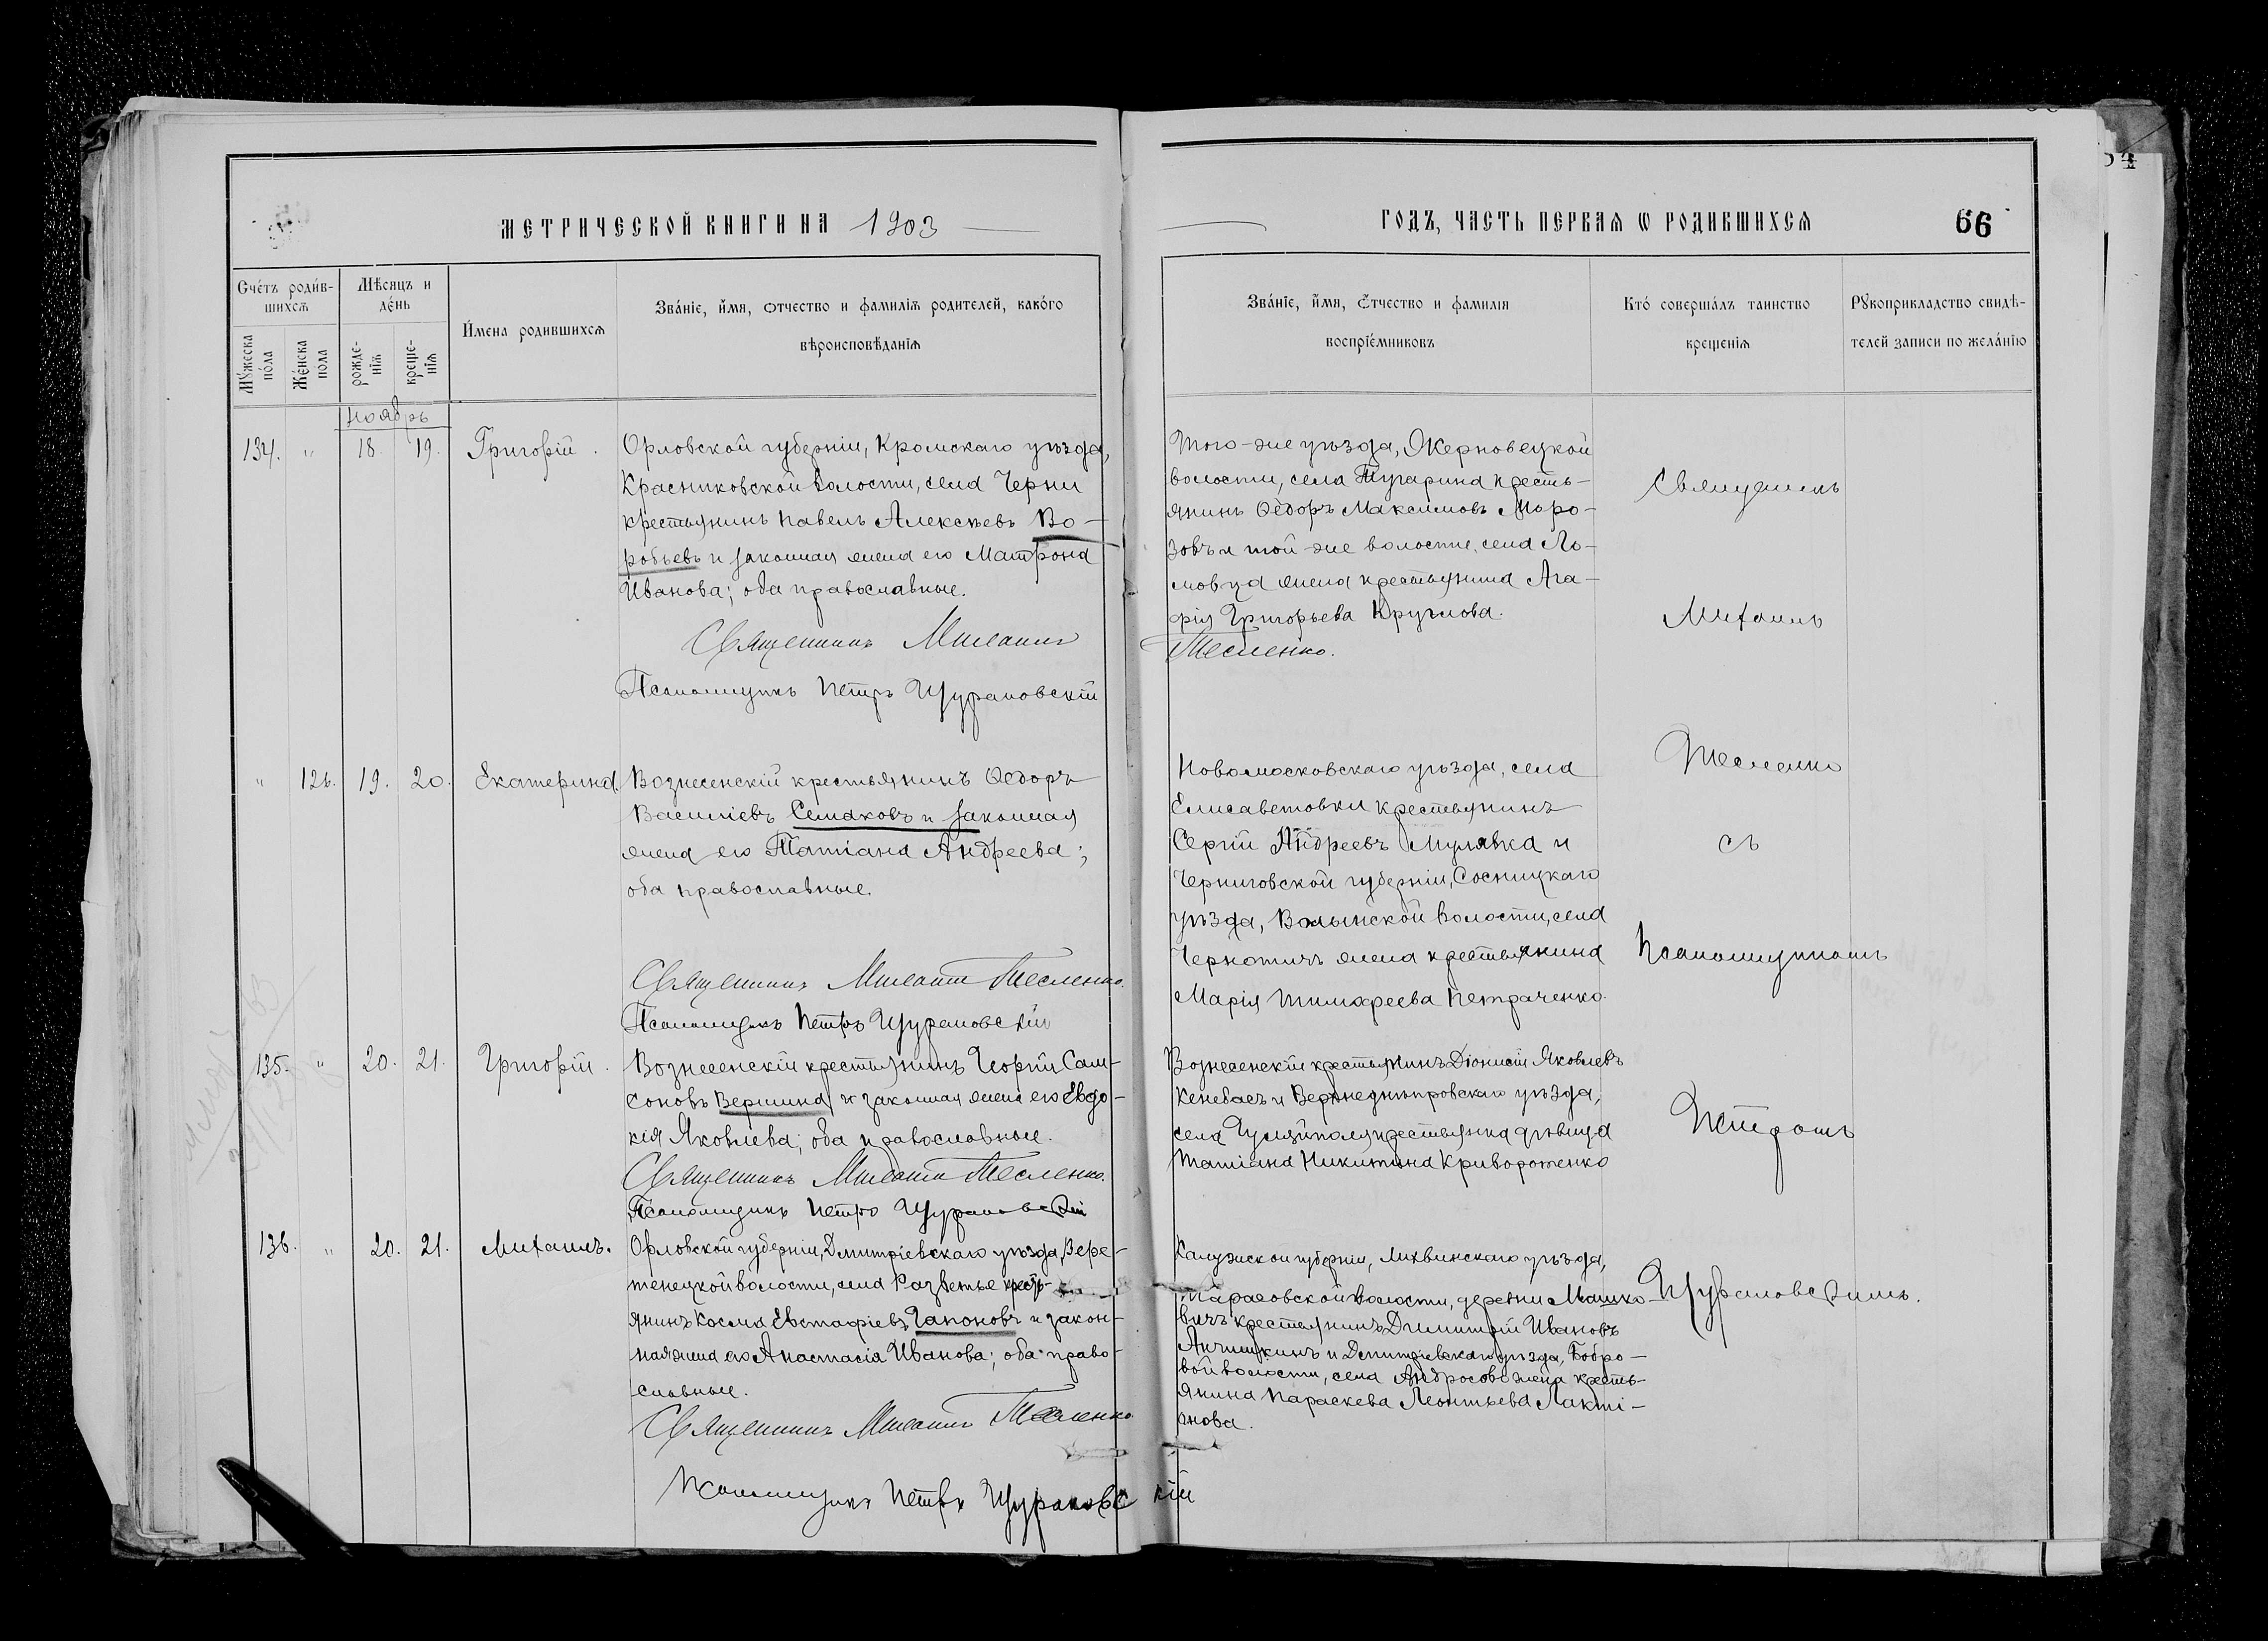 МЕТРИЧЕСКОЙ КНИГИ НА 1903
ГОДЪ, ЧАСТЬ ПЕРВАЯ Ѡ РОДИВШИХСЯ
66
Счетъ родив-
шихся
Мѣсяцъ и
день
Мужеска пола
Женска пола
рожде-
нія
креще-
нія
Имена родившихся
Званіе, имя, отчество и фамилія родителей, какого
вѣроисповѣданія
Званіе, имя, отчество и фамилія
воспріемниковъ
Кто совершалъ таинство
крещенія
Рукоприкладство свидѣ-
телей записи по желанію
Ноябрь
134. " 18. 19. Григорій.
Орловской губерніи, Кромскаго уѣзда,
Красниковской волости, села Черни
крестьянинъ Павелъ Алексѣевъ Во-
робьевъ и законная жена его Матрона
Иванова; оба православные.
Священникъ Тесленко.
Псаломщикъ Петръ Щурановскій
Того-же уѣзда, Жерновецкой
волости, села Тугарина кресть-
янинъ Ѳедоръ Максимовъ Моро-
зовъ и той-же волости, села Ло-
мовца жена крестьянина Ага-
фія Григорьева Круглова.
Священникъ
Михаилъ
Тесленко
съ
Псаломщикомъ
Петромъ
Щурановскимъ.
" 126. 19. 20. Екатерина.
Вознесенскій крестьянинъ Ѳедоръ
Василіевъ Семаховъ и законная
жена его Татіана Андреева;
оба православные.
Священникъ Тесленко.
Псаломщикъ Петръ Щурановскій
Новомосковскаго уѣзда, села
Елисаветовки крестьянинъ
Сергій Андреевъ Мулявка и
Черниговской губерніи, Сосницкаго
уѣзда, Волынской волости, села
Чернотичъ жена крестьянина
Марія Тимофеева Петраченко.
135. " 20. 21. Григорій.
Вознесенскій крестьянинъ Георгій Сам-
соновъ Вершина и законная жена его Евдо-
кія Яковлева; оба православные.
Священникъ Тесленко.
Псаломщикъ Петръ Щурановскій
Вознесенскій крестьянинъ Діонисій Яковлевъ
Кенебасъ и Верхнеднѣпровскаго уѣзда,
села Гуляйполя крестьянка дѣвица
Татіана Никитина Кривороженко
136. " 20. 21. Михаилъ.
Орловской губерніи, Дмитріевскаго уѣзда, Вере-
тенецкой волости, села Разветье кресть-
янинъ Косма Евстафіевъ Гапоновъ и закон-
ная жена его Анастасія Иванова; оба право-
славные.
Священникъ Тесленко.
Псаломщикъ Петръ Щурановскій
Калужской губерніи, Лихвинскаго уѣзда,
волости, деревни Машко-
вичъ крестьянинъ Димитрій Ивановъ
Анчишкинъ и Дмитріевскаго уѣзда, Бобро-
вой волости, села Андросово жена кресть-
янина Параскева Леонтьева Лакті-
онова.